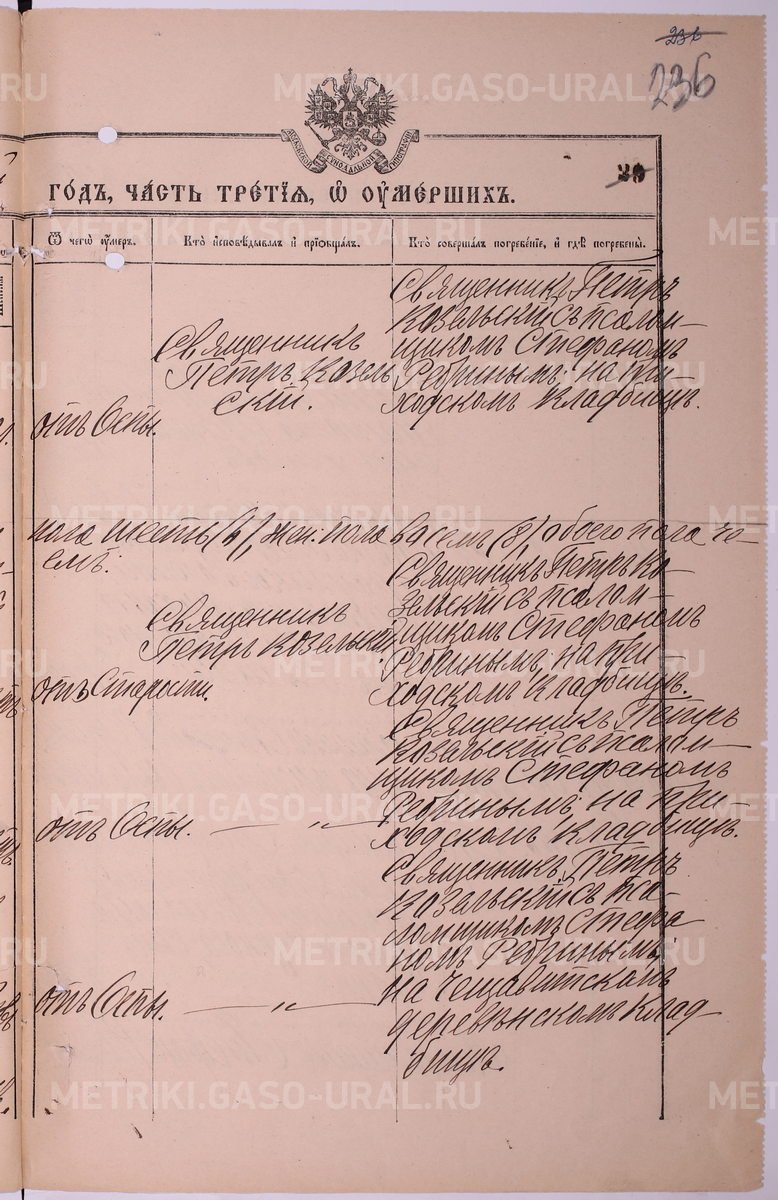 236
236
МОСКОВСКОЙ СѴНОДАЛЬНОЙ ТИПОГРАФІИ
39
ГОДЪ, ЧАСТЬ ТРЕТІЯ, Ѡ ОУМЕРШИХЪ.
Ѿ чегѡ оумеръ.
Кто исповѣдывалъ и пріобщалъ.
Кто совершалъ погребеніе, и гдѣ погребены.
отъ Оспы.
Священникъ
Петръ Козель
скій.
Священникъ Петръ
Козельскій съ псалом-
щикомъ Стефаномъ
Ребринымъ; на при-
ходскомъ кладбищѣ.
пола шесть (6), жен: пола два семъ (8) обоего пола че-
емъ:
отъ Старости.
Священникъ
Петръ Козельскій
Священникъ Петръ Ко-
зельскій съ псалом-
щикомъ Стефаномъ
Ребринымъ, на при-
ходскомъ кладбищѣ.
отъ Оспы.
— „ —
Священникъ Петръ
Козельскій съ псалом-
щикомъ Стефаномъ
Ребринымъ; на при-
ходскомъ кладбищѣ.
отъ Оспы.
— „ —
Священникъ Петръ
Козельскій съ пса-
ломщикомъ Стефа-
номъ Ребринымъ;
на
деревенскомъ клад-
бищѣ.
METRIKI.GASO-URAL.RU